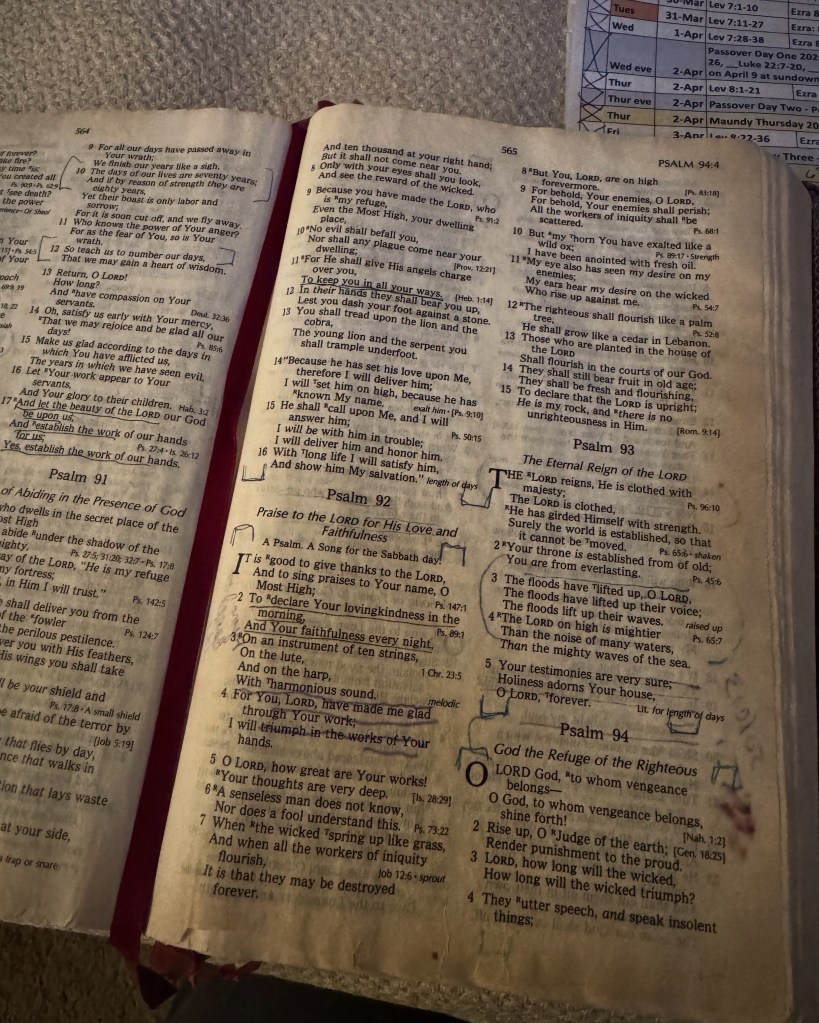 564
forever?
time
You created all
Ps. 90:9 • Ps. 62:9
see death?
the power
Your
9 For all our days have passed away in
Your wrath;
We finish our years like a sigh.
10 The days of our lives are seventy years;
And if by reason of strength they are
eighty years,
Yet their boast is only labor and
sorrow;
For it is soon cut off, and we fly away.
11 Who knows the power of Your anger?
For as the fear of You, so is Your
wrath.
12 So teach us to number our days,
That we may gain a heart of wisdom.
13 Return, O LORD!
How long?
And ᴿhave compassion on Your
servants.
Deut. 32:36
14 Oh, satisfy us early with Your mercy,
ᴿThat we may rejoice and be glad all our
days!
Ps. 85:6
15 Make us glad according to the days in
which You have afflicted us,
The years in which we have seen evil.
16 Let ᴿYour work appear to Your
servants,
And Your glory to their children.
Hab. 3:2
17 ᴿAnd let the beauty of the LORD our God
be upon us,
And ᴿestablish the work of our hands
for us;
Yes, establish the work of our hands.
Ps. 27:4 • Is. 26:12
Psalm 91
of Abiding in the Presence of God
who dwells in the secret place of the
ost High
abide ᴿunder the shadow of the
mighty.
Ps. 27:5; 31:20; 32:7 • Ps. 17:8
ay of the LORD, "He is my refuge
ny fortress;
, in Him I will trust."
Ps. 142:5
e shall deliver you from the
of the ᴿfowler
the perilous pestilence.
Ps. 124:7
ver you with His feathers,
His wings you shall take
ll be your shield and
Ps. 17:8 • A small shield
e afraid of the terror by
[Job 5:19]
that flies by day,
nce that walks in
tion that lays waste
at your side,
a trap or snare
565
PSALM 94:4
And ten thousand at your right hand;
But it shall not come near you.
8 Only with your eyes shall you look,
And see the reward of the wicked.
9 Because you have made the LORD, who
is ᴿmy refuge,
Even the Most High, your dwelling
place,
Ps. 91:2
10 ᴿNo evil shall befall you,
Nor shall any plague come near your
dwelling;
[Prov. 12:21]
11 ᴿFor He shall give His angels charge
over you,
To keep you in all your ways.
[Heb. 1:14]
12 In their hands they shall bear you up,
Lest you dash your foot against a stone.
13 You shall tread upon the lion and the
cobra,
The young lion and the serpent you
shall trample underfoot.
14 "Because he has set his love upon Me,
therefore I will deliver him;
I will ᵀset him on high, because he has
ᴿknown My name.
exalt him • [Ps. 9:10]
15 He shall ᴿcall upon Me, and I will
answer him;
I will be with him in trouble;
Ps. 50:15
I will deliver him and honor him.
16 With ᵀlong life I will satisfy him,
And show him My salvation."
length of days
Psalm 92
Praise to the LORD for His Love and
Faithfulness
A Psalm. A Song for the Sabbath day.
IT is ᴿgood to give thanks to the LORD,
And to sing praises to Your name, O
Most High;
Ps. 147:1
2 To ᴿdeclare Your lovingkindness in the
morning,
And Your faithfulness every night,
Ps. 89:1
3 ᴿOn an instrument of ten strings,
On the lute,
And on the harp,
1 Chr. 23:5
With ᵀharmonious sound.
melodic
4 For You, LORD, have made me glad
through Your work;
I will triumph in the works of Your
hands.
5 O LORD, how great are Your works!
ᴿYour thoughts are very deep.
[Is. 28:29]
6 ᴿA senseless man does not know,
Nor does a fool understand this.
Ps. 73:22
7 When ᴿthe wicked ᵀspring up like grass,
And when all the workers of iniquity
flourish,
Job 12:6 • sprout
It is that they may be destroyed
forever.
8 ᴿBut You, LORD, are on high
forevermore.
[Ps. 83:18]
9 For behold, Your enemies, O LORD,
For behold, Your enemies shall perish;
All the workers of iniquity shall ᴿbe
scattered.
Ps. 68:1
10 But ᴿmy ᵀhorn You have exalted like a
wild ox;
I have been anointed with fresh oil.
Ps. 89:17 • Strength
11 ᴿMy eye also has seen my desire on my
enemies;
My ears hear my desire on the wicked
Who rise up against me.
Ps. 54:7
12 ᴿThe righteous shall flourish like a palm
tree,
Ps. 52:8
He shall grow like a cedar in Lebanon.
13 Those who are planted in the house of
the LORD
Shall flourish in the courts of our God.
14 They shall still bear fruit in old age;
They shall be fresh and flourishing,
15 To declare that the LORD is upright;
He is my rock, and ᴿthere is no
unrighteousness in Him.
[Rom. 9:14]
Psalm 93
The Eternal Reign of the LORD
THE ᴿLORD reigns, He is clothed with
majesty;
The LORD is clothed,
Ps. 96:10
ᴿHe has girded Himself with strength.
Surely the world is established, so that
it cannot be ᵀmoved.
Ps. 65:6 • shaken
2 ᴿYour throne is established from of old;
You are from everlasting.
Ps. 45:6
3 The floods have ᵀlifted up, O LORD,
The floods have lifted up their voice;
The floods lift up their waves.
raised up
4 ᴿThe LORD on high is mightier
Than the noise of many waters,
Than the mighty waves of the sea.
Ps. 65:7
5 Your testimonies are very sure;
Holiness adorns Your house,
O LORD, ᵀforever.
Lit. for length of days
Psalm 94
God the Refuge of the Righteous
O LORD God, ᴿto whom vengeance
belongs—
O God, to whom vengeance belongs,
shine forth!
[Nah. 1:2]
2 Rise up, O ᴿJudge of the earth;
[Gen. 18:25]
Render punishment to the proud.
3 LORD, how long will the wicked,
How long will the wicked triumph?
4 They ᴿutter speech, and speak insolent
things;
30-Mar Lev 7:1-10 Ezra 8
Tues 31-Mar Lev 7:11-27 Ezra:
Wed 1-Apr Lev 7:28-38 Ezra
Wed eve 2-Apr Passover Day One 202
26, __Luke 22:7-20,
on April 9 at sundown
Thur 2-Apr Lev 8:1-21 Ezra
Thur eve 2-Apr Passover Day Two - P
Thur 2-Apr Maundy Thursday 20
Fri 3-Apr Lev 8:22-36 Ezra
Three